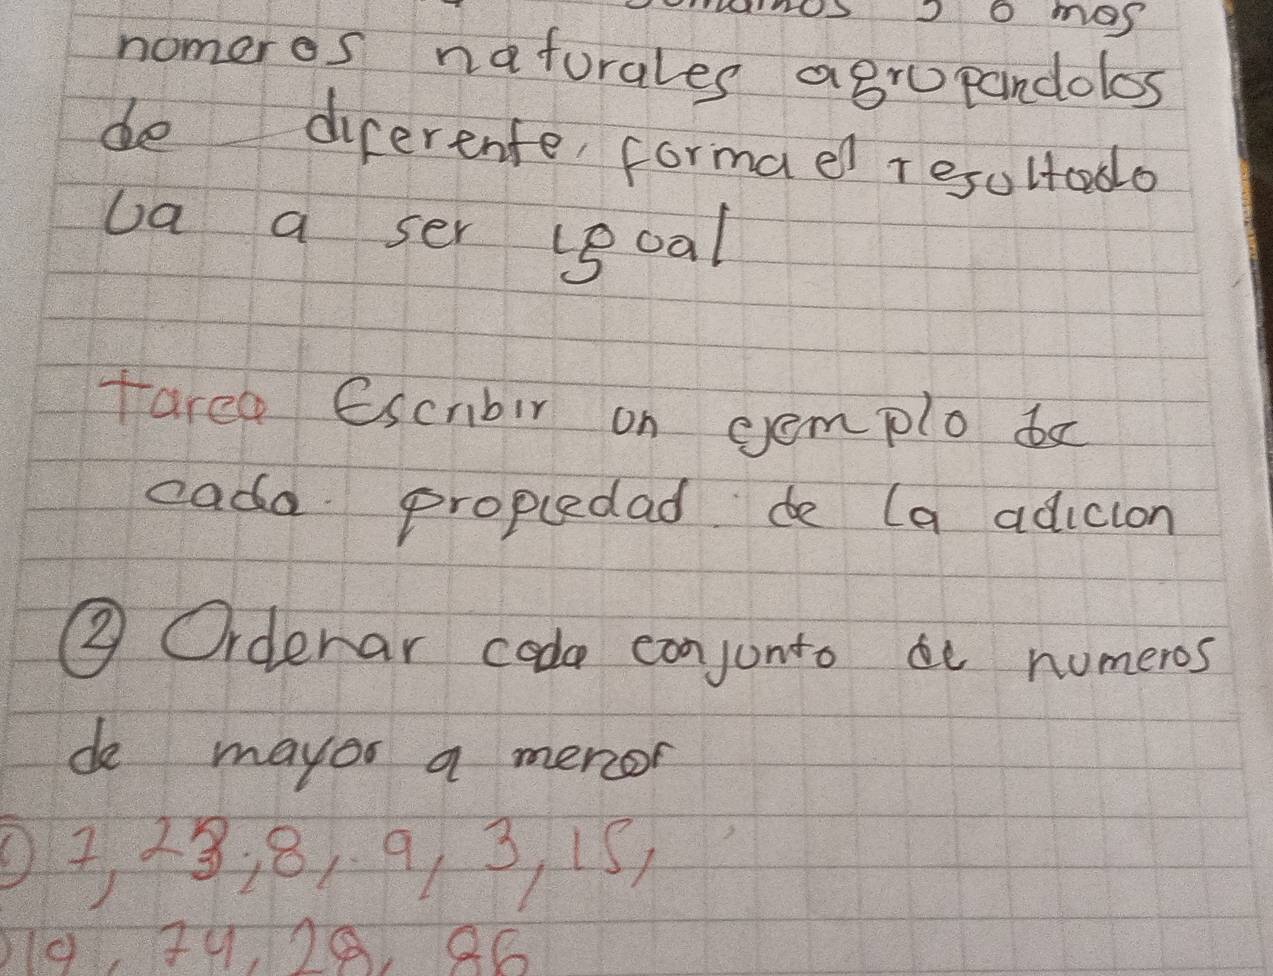 somamos 3 o mas
nomeros naturales agrupandolos
de diferente, forma el resultado
va a ser igual
tarea Escribir un ejemplo de
cada propiedad de la adicion
② Ordenar cada conjunto de numeros
de mayor a menor
① 7, 23, 8, 9, 3, 15,
19, 74, 28, 86